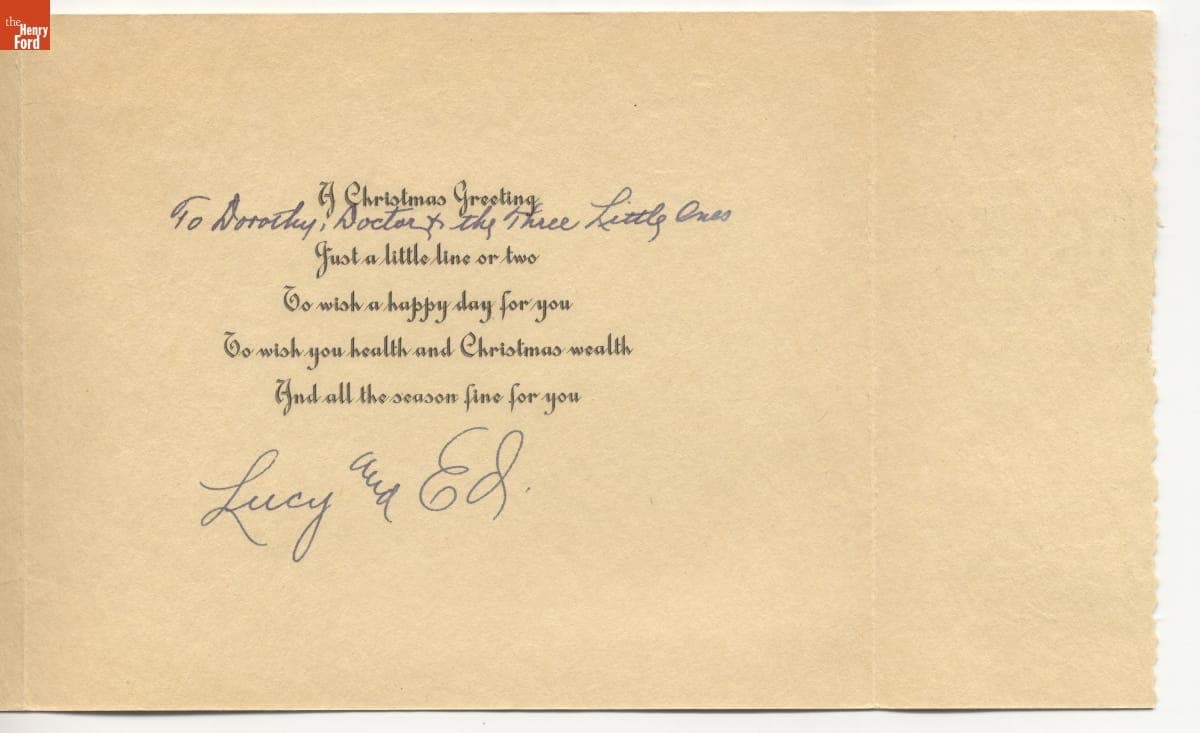 the
Henry
Ford
A Christmas Greeting
To Dorothy, Doctor & the Three Little Ones
Just a little line or two
To wish a happy day for you
To wish you health and Christmas wealth
And all the season fine for you
Lucy and Ed.